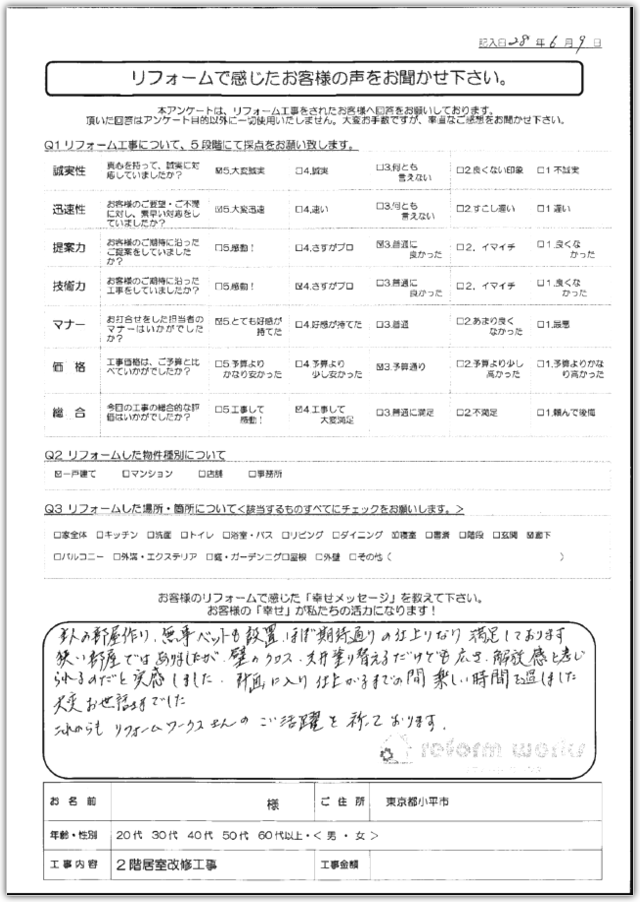 記入日 28 年 6 月 9 日
リフォームで感じたお客様の声をお聞かせ下さい。
本アンケートは、リフォーム工事をされたお客様へ回答をお願いしております。
頂いた回答はアンケート目的以外に一切使用いたしません。大変お手数ですが、率直なご感想をお聞かせ下さい。
Q1 リフォーム工事について、5段階にて採点をお願い致します。
誠実性 真心を持って、誠実に対応していましたか? ☑5.大変誠実 □4.誠実 □3.何とも言えない □2.良くない印象 □1.不誠実
迅速性 お客様のご要望・ご不満に対し、素早い対応をしていましたか? ☑5.大変迅速 □4.速い □3.何とも言えない □2.すこし遅い □1.遅い
提案力 お客様のご期待に沿ったご提案をしていましたか? □5.感動! □4.さすがプロ ☑3.普通に良かった □2.イマイチ □1.良くなかった
技術力 お客様のご期待に沿った工事をしていましたか? □5.感動! ☑4.さすがプロ □3.普通に良かった □2.イマイチ □1.良くなかった
マナー お打合せをした担当者のマナーはいかがでしたか? ☑5.とても好感が持てた □4.好感が持てた □3.普通 □2.あまり良くなかった □1.最悪
価格 工事価格は、ご予算と比べていかがでしたか? □5.予算よりかなり安かった □4.予算より少し安かった ☑3.予算通り □2.予算より少し高かった □1.予算よりかなり高かった
総合 今回の工事の総合的な評価はいかがでしたか? □5.工事して感動! ☑4.工事して大変満足 □3.普通に満足 □2.不満足 □1.頼んで後悔
Q2 リフォームした物件種別について
☑一戸建て □マンション □店舗 □事務所
Q3 リフォームした場所・箇所について<該当するものすべてにチェックをお願いします。>
□家全体 □キッチン □洗面 □トイレ □浴室・バス □リビング □ダイニング ☑寝室 □書斎 □階段 □玄関 ☑廊下
□バルコニー □外構・エクステリア □庭・ガーデニング □屋根 □外壁 □その他( )
お客様のリフォームで感じた「幸せメッセージ」を教えて下さい。
お客様の「幸せ」が私たちの活力になります!
の部屋作り、無事ベットも設置、ほぼ期待通りの仕上りなり満足しております
狭い部屋ではありましたが、壁のクロス、天井塗り替えるだけでも広さ、解放感と感じ
られるのだと実感しました。計画に入り仕上がるまでの間楽しい時間を過しました
大変お世話さまでした
これからもリフォームワークスさんのご活躍を祈っております。
reform works
お名前 様 ご住所 東京都小平市
年齢・性別 20代 30代 40代 50代 60代以上・<男・女>
工事内容 2階居室改修工事 工事金額